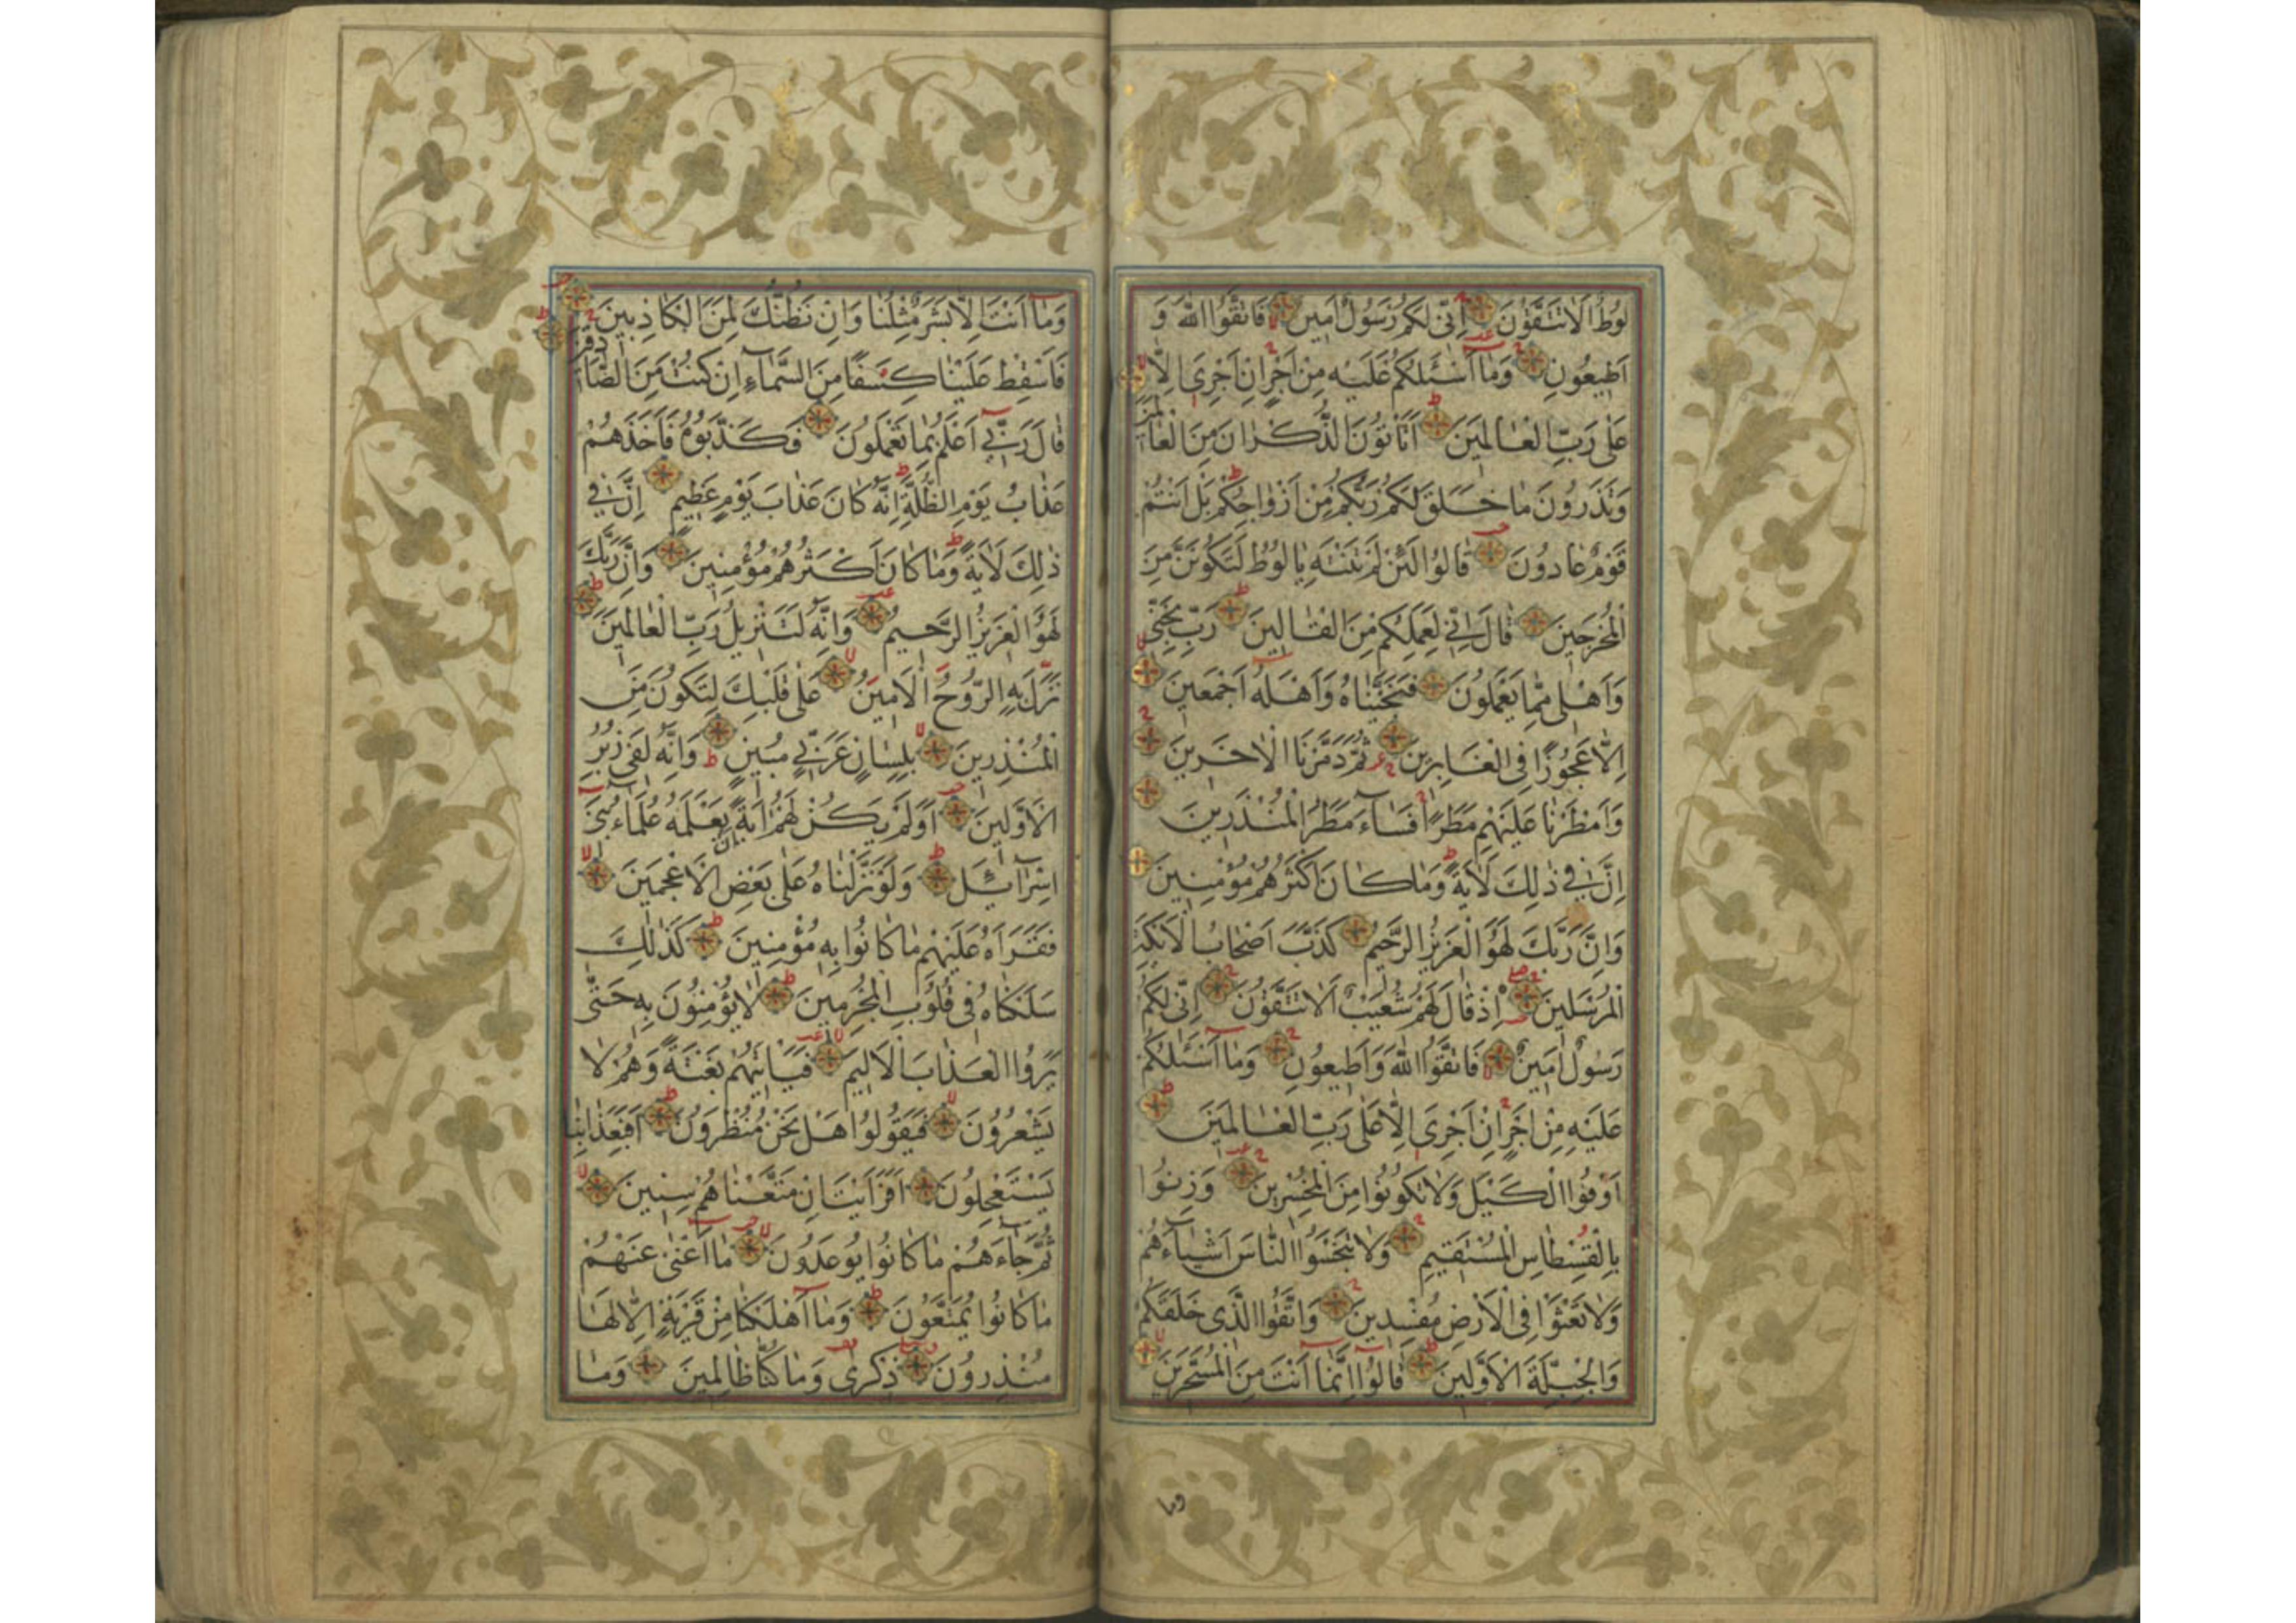 لُوطٌ اَلَا تَتَّقُونَ اِنّى لَكُمْ رَسُولٌ اَمِينٌ فَاتَّقُوا اللّٰهَ وَ
اَطِيعُونِ وَمَا اَسْئَلُكُمْ عَلَيْهِ مِنْ اَجْرٍ اِنْ اَجْرِىَ اِلَّا
عَلٰى رَبِّ الْعَالَمِينَ اَتَأْتُونَ الذُّكْرَانَ مِنَ الْعَالَمِينَ
وَتَذَرُونَ مَا خَلَقَ لَكُمْ رَبُّكُمْ مِنْ اَزْوَاجِكُمْ بَلْ اَنْتُمْ
قَوْمٌ عَادُونَ قَالُوا لَئِنْ لَمْ تَنْتَهِ يَا لُوطُ لَتَكُونَنَّ مِنَ
الْمُخْرَجِينَ قَالَ اِنّى لِعَمَلِكُمْ مِنَ الْقَالِينَ رَبِّ نَجِّنى
وَاَهْلى مِمَّا يَعْمَلُونَ فَنَجَّيْنَاهُ وَاَهْلَهُ اَجْمَعِينَ
اِلَّا عَجُوزًا فِى الْغَابِرِينَ ثُمَّ دَمَّرْنَا الْاٰخَرِينَ
وَاَمْطَرْنَا عَلَيْهِمْ مَطَرًا فَسَاءَ مَطَرُ الْمُنْذَرِينَ
اِنَّ فى ذٰلِكَ لَاٰيَةً وَمَا كَانَ اَكْثَرُهُمْ مُؤْمِنِينَ
وَاِنَّ رَبَّكَ لَهُوَ الْعَزِيزُ الرَّحِيمُ كَذَّبَ اَصْحَابُ الْاَيْكَةِ
الْمُرْسَلِينَ اِذْ قَالَ لَهُمْ شُعَيْبٌ اَلَا تَتَّقُونَ اِنّى لَكُمْ
رَسُولٌ اَمِينٌ فَاتَّقُوا اللّٰهَ وَاَطِيعُونِ وَمَا اَسْئَلُكُمْ
عَلَيْهِ مِنْ اَجْرٍ اِنْ اَجْرِىَ اِلَّا عَلٰى رَبِّ الْعَالَمِينَ
اَوْفُوا الْكَيْلَ وَلَا تَكُونُوا مِنَ الْمُخْسِرِينَ وَزِنُوا
بِالْقِسْطَاسِ الْمُسْتَقِيمِ وَلَا تَبْخَسُوا النَّاسَ اَشْيَاءَهُمْ
وَلَا تَعْثَوْا فِى الْاَرْضِ مُفْسِدِينَ وَاتَّقُوا الَّذى خَلَقَكُمْ
وَالْجِبِلَّةَ الْاَوَّلِينَ قَالُوا اِنَّمَا اَنْتَ مِنَ الْمُسَحَّرِينَ
وما
وَمَا اَنْتَ اِلَّا بَشَرٌ مِثْلُنَا وَاِنْ نَظُنُّكَ لَمِنَ الْكَاذِبِينَ
فَاَسْقِطْ عَلَيْنَا كِسَفًا مِنَ السَّمَاءِ اِنْ كُنْتَ مِنَ الصَّادِقِينَ
قَالَ رَبّى اَعْلَمُ بِمَا تَعْمَلُونَ فَكَذَّبُوهُ فَاَخَذَهُمْ
عَذَابُ يَوْمِ الظُّلَّةِ اِنَّهُ كَانَ عَذَابَ يَوْمٍ عَظِيمٍ اِنَّ فى
ذٰلِكَ لَاٰيَةً وَمَا كَانَ اَكْثَرُهُمْ مُؤْمِنِينَ وَاِنَّ رَبَّكَ
لَهُوَ الْعَزِيزُ الرَّحِيمُ وَاِنَّهُ لَتَنْزِيلُ رَبِّ الْعَالَمِينَ
نَزَلَ بِهِ الرُّوحُ الْاَمِينُ عَلٰى قَلْبِكَ لِتَكُونَ مِنَ
الْمُنْذِرِينَ بِلِسَانٍ عَرَبِىٍّ مُبِينٍ وَاِنَّهُ لَفى زُبُرِ
الْاَوَّلِينَ اَوَلَمْ يَكُنْ لَهُمْ اٰيَةً اَنْ يَعْلَمَهُ عُلَمَاءُ بَنى
اِسْرَائِلَ وَلَوْ نَزَّلْنَاهُ عَلٰى بَعْضِ الْاَعْجَمِينَ
فَقَرَاَهُ عَلَيْهِمْ مَا كَانُوا بِهِ مُؤْمِنِينَ كَذٰلِكَ
سَلَكْنَاهُ فى قُلُوبِ الْمُجْرِمِينَ لَا يُؤْمِنُونَ بِهِ حَتّٰى
يَرَوُا الْعَذَابَ الْاَلِيمَ فَيَأْتِيَهُمْ بَغْتَةً وَهُمْ لَا
يَشْعُرُونَ فَيَقُولُوا هَلْ نَحْنُ مُنْظَرُونَ اَفَبِعَذَابِنَا
يَسْتَعْجِلُونَ اَفَرَاَيْتَ اِنْ مَتَّعْنَاهُمْ سِنِينَ
ثُمَّ جَاءَهُمْ مَا كَانُوا يُوعَدُونَ مَا اَغْنٰى عَنْهُمْ
مَا كَانُوا يُمَتَّعُونَ وَمَا اَهْلَكْنَا مِنْ قَرْيَةٍ اِلَّا لَهَا
مُنْذِرُونَ ذِكْرٰى وَمَا كُنَّا ظَالِمِينَ وَمَا